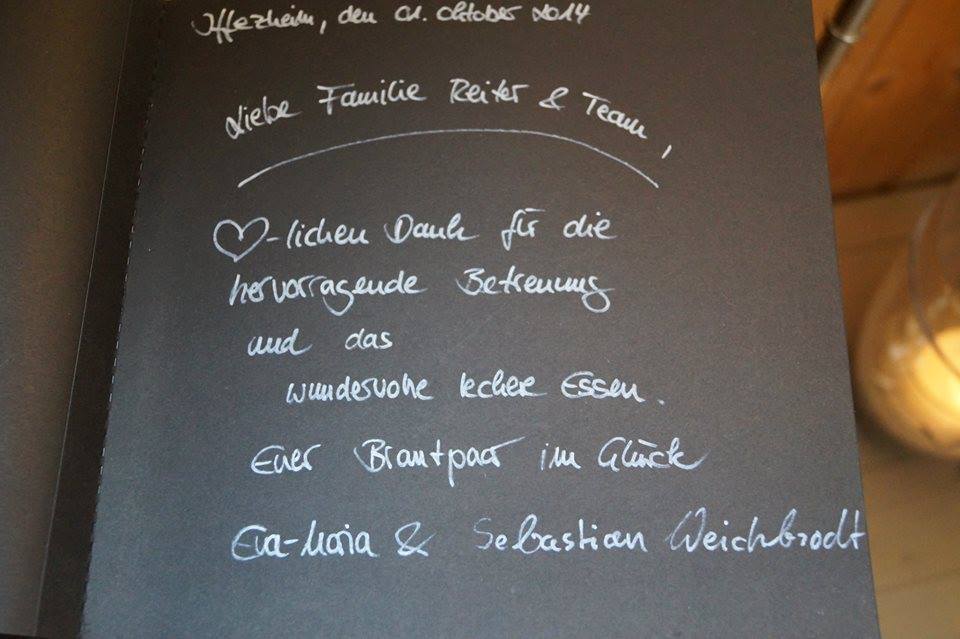 Iffezheim, den 01. Oktober 2014
Liebe Familie Reiter & Team,
♡-lichen Dank für die
hervorragende Betreuung
und das
wundervolle leckere Essen.
Euer Brautpaar im Glück
Eva-Maria & Sebastian Weichbrodt